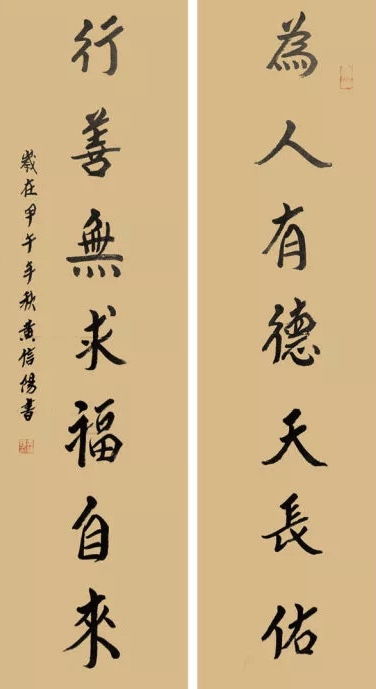 為人有德天長佑
行善無求福自來
歲在甲午年秋黄信陽書